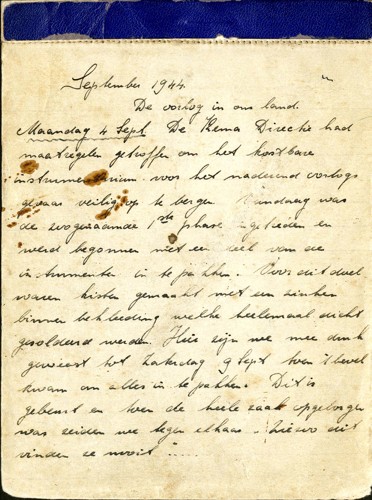 September 1944
De oorlog in ons land.
Maandag 4 Sept De Kema Directie had
maatregelen getroffen om het kostbare
instrumentarium voor het naderend oorlogs
gevaar veilig op te bergen. Vandaag was
de zogenaamde 1ste phase ingetreden en
werd begonnen met een deel van de
instrumenten in te pakken. Voor dit doel
waren kisten gemaakt met een zinken
binnen bekleeding welke heelemaal dicht
gesoldeerd werden. Hier zijn we mee druk
geweest tot Zaterdag 9 Sept toen 't bevel
kwam om alles in te pakken. Dit is
gebeurt en toen de heele zaak opgeborgen
was zeiden we tegen elkaar "hiervo dit
vinden ze nooit"